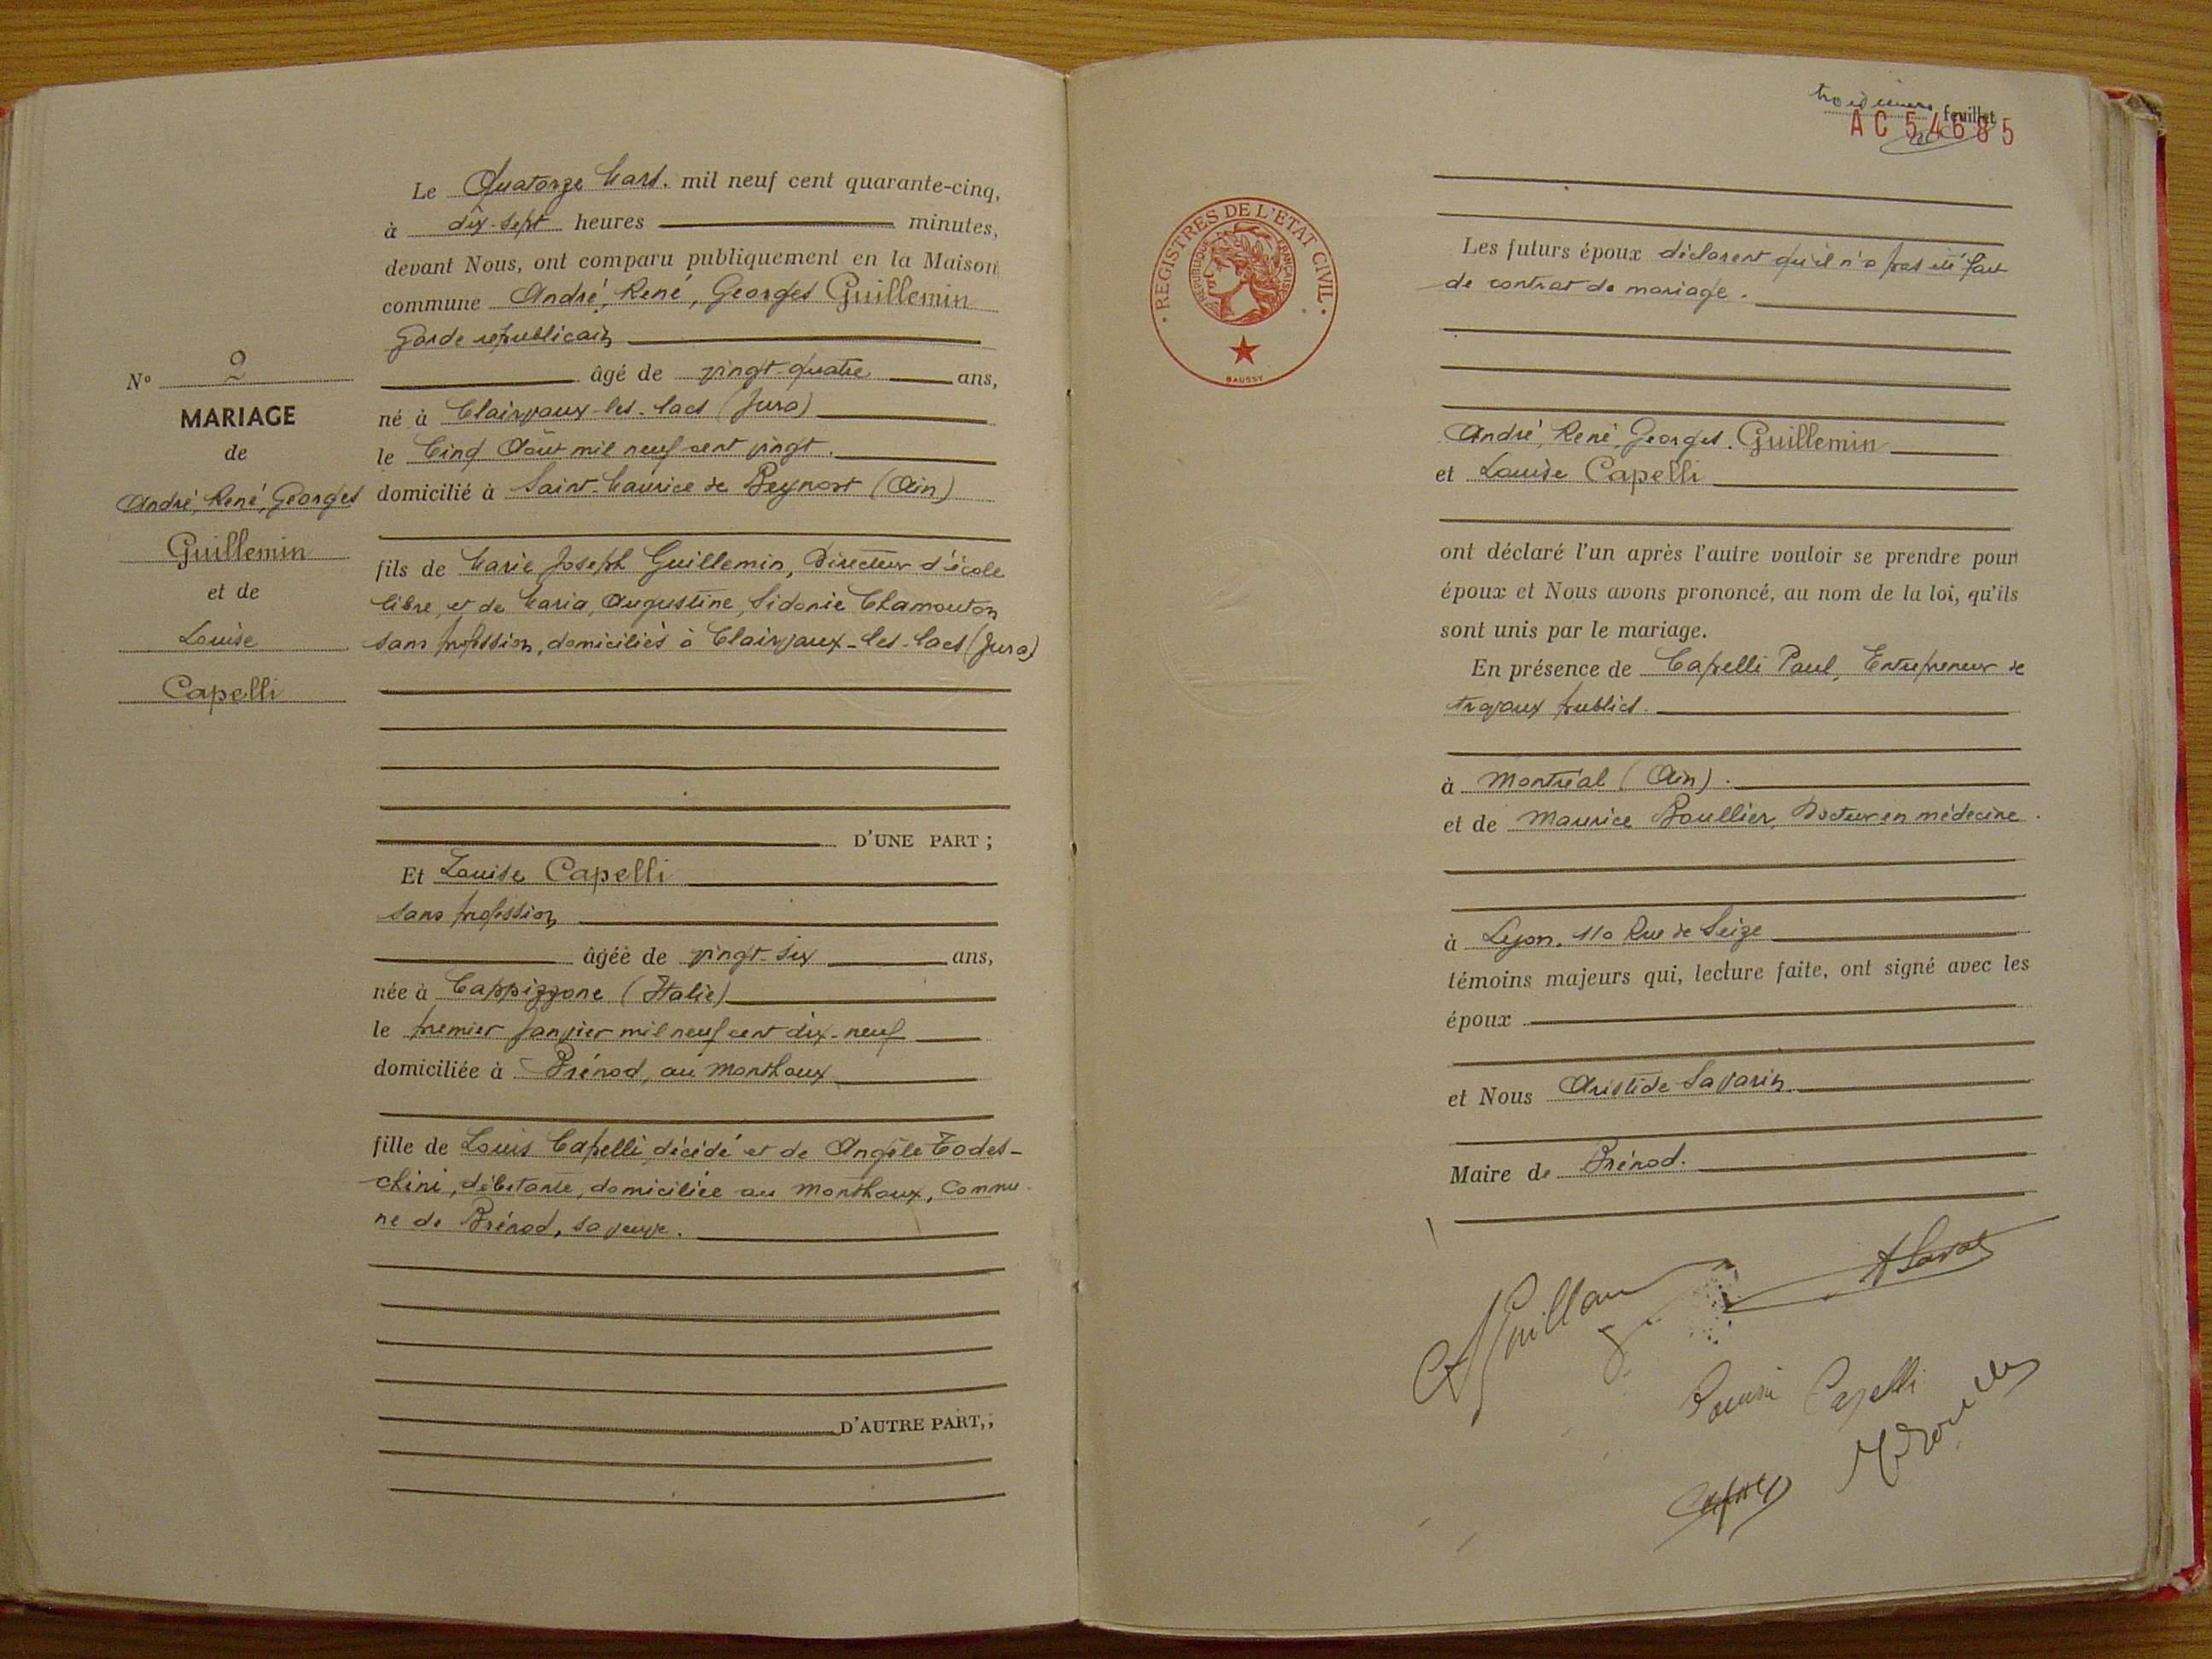 Le Quatorze Mars. mil neuf cent quarante-cinq,
à dix-sept heures minutes,
devant Nous, ont comparu publiquement en la Maison
commune André, René, Georges Guillemin
Garde républicain
âgé de vingt-quatre ans,
né à Clairvaux-les-Lacs (Jura)
le Cinq Août mil neuf cent vingt.
domicilié à Saint-Maurice de Beynost (Ain)
fils de Marie Joseph Guillemin, Directeur d'école
libre, et de Maria, Augustine, Sidonie Chamouton
sans profession, domiciliés à Clairvaux-les-Lacs (Jura)
D'UNE PART ;
Et Louise Capelli
sans profession
âgée de vingt-six ans,
née à Cappizzone (Italie)
le premier Janvier mil neuf cent dix-neuf
domiciliée à Brénod, au Monthoux
fille de Louis Capelli, décédé et de Angèle Todes-
chini, débitante, domiciliée au Monthoux, Commu-
ne de Brénod, sa veuve.
D'AUTRE PART,;
N° 2
MARIAGE
de
André, René, Georges
Guillemin
et de
Louise
Capelli
troisième feuillet
AC 54685
REGISTRES DE L'ETAT CIVIL
REPUBLIQUE FRANÇAISE
BAUSSY
Les futurs époux déclarent qu'il n'a pas été fait
de contrat de mariage.
André, René, Georges. Guillemin
et Louise Capelli
ont déclaré l'un après l'autre vouloir se prendre pour
époux et Nous avons prononcé, au nom de la loi, qu'ils
sont unis par le mariage.
En présence de Capelli Paul, Entrepreneur de
travaux publics.
à Montréal (Ain).
et de Maurice Boullier, Docteur en médecine.
à Lyon. 110 Rue de Sèize
témoins majeurs qui, lecture faite, ont signé avec les
époux
et Nous Aristide Savarin
Maire de Brénod.
Capelli